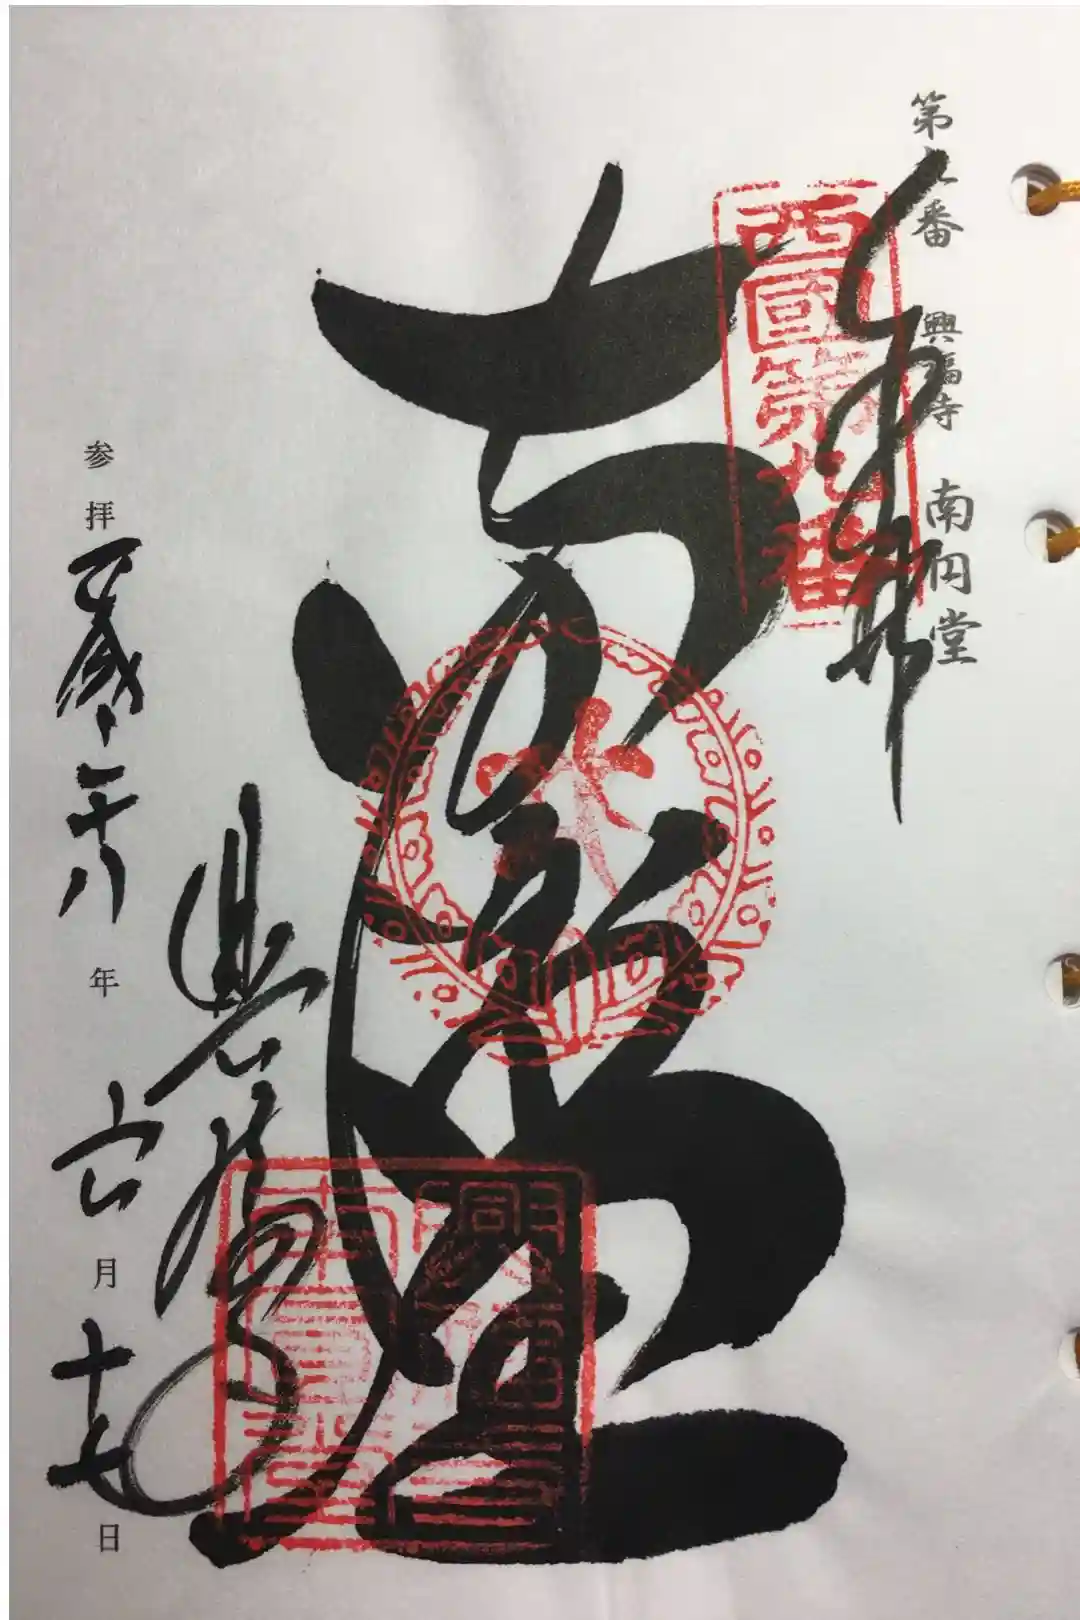 第九番 興福寺 南円堂
奉拝
西國第九番
南円堂
興福寺
参拝 平成二十八年 六月 十七日